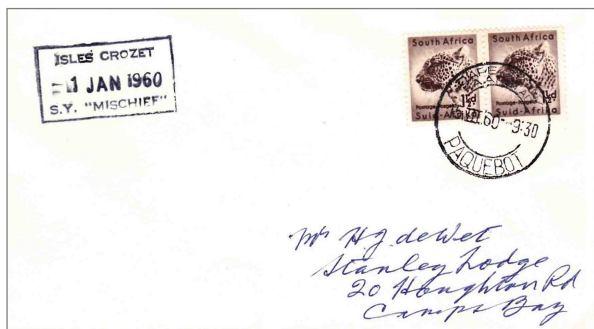 ISLES CROZET
1 JAN 1960
S.Y. "MISCHIEF"
South Africa
South Africa
Suid-Afrika
Suid-Afrika
60-9:30
PAQUEBOT
Mr H.J. de Wet
Stanley Lodge
20 Houghton Rd
Camps Bay